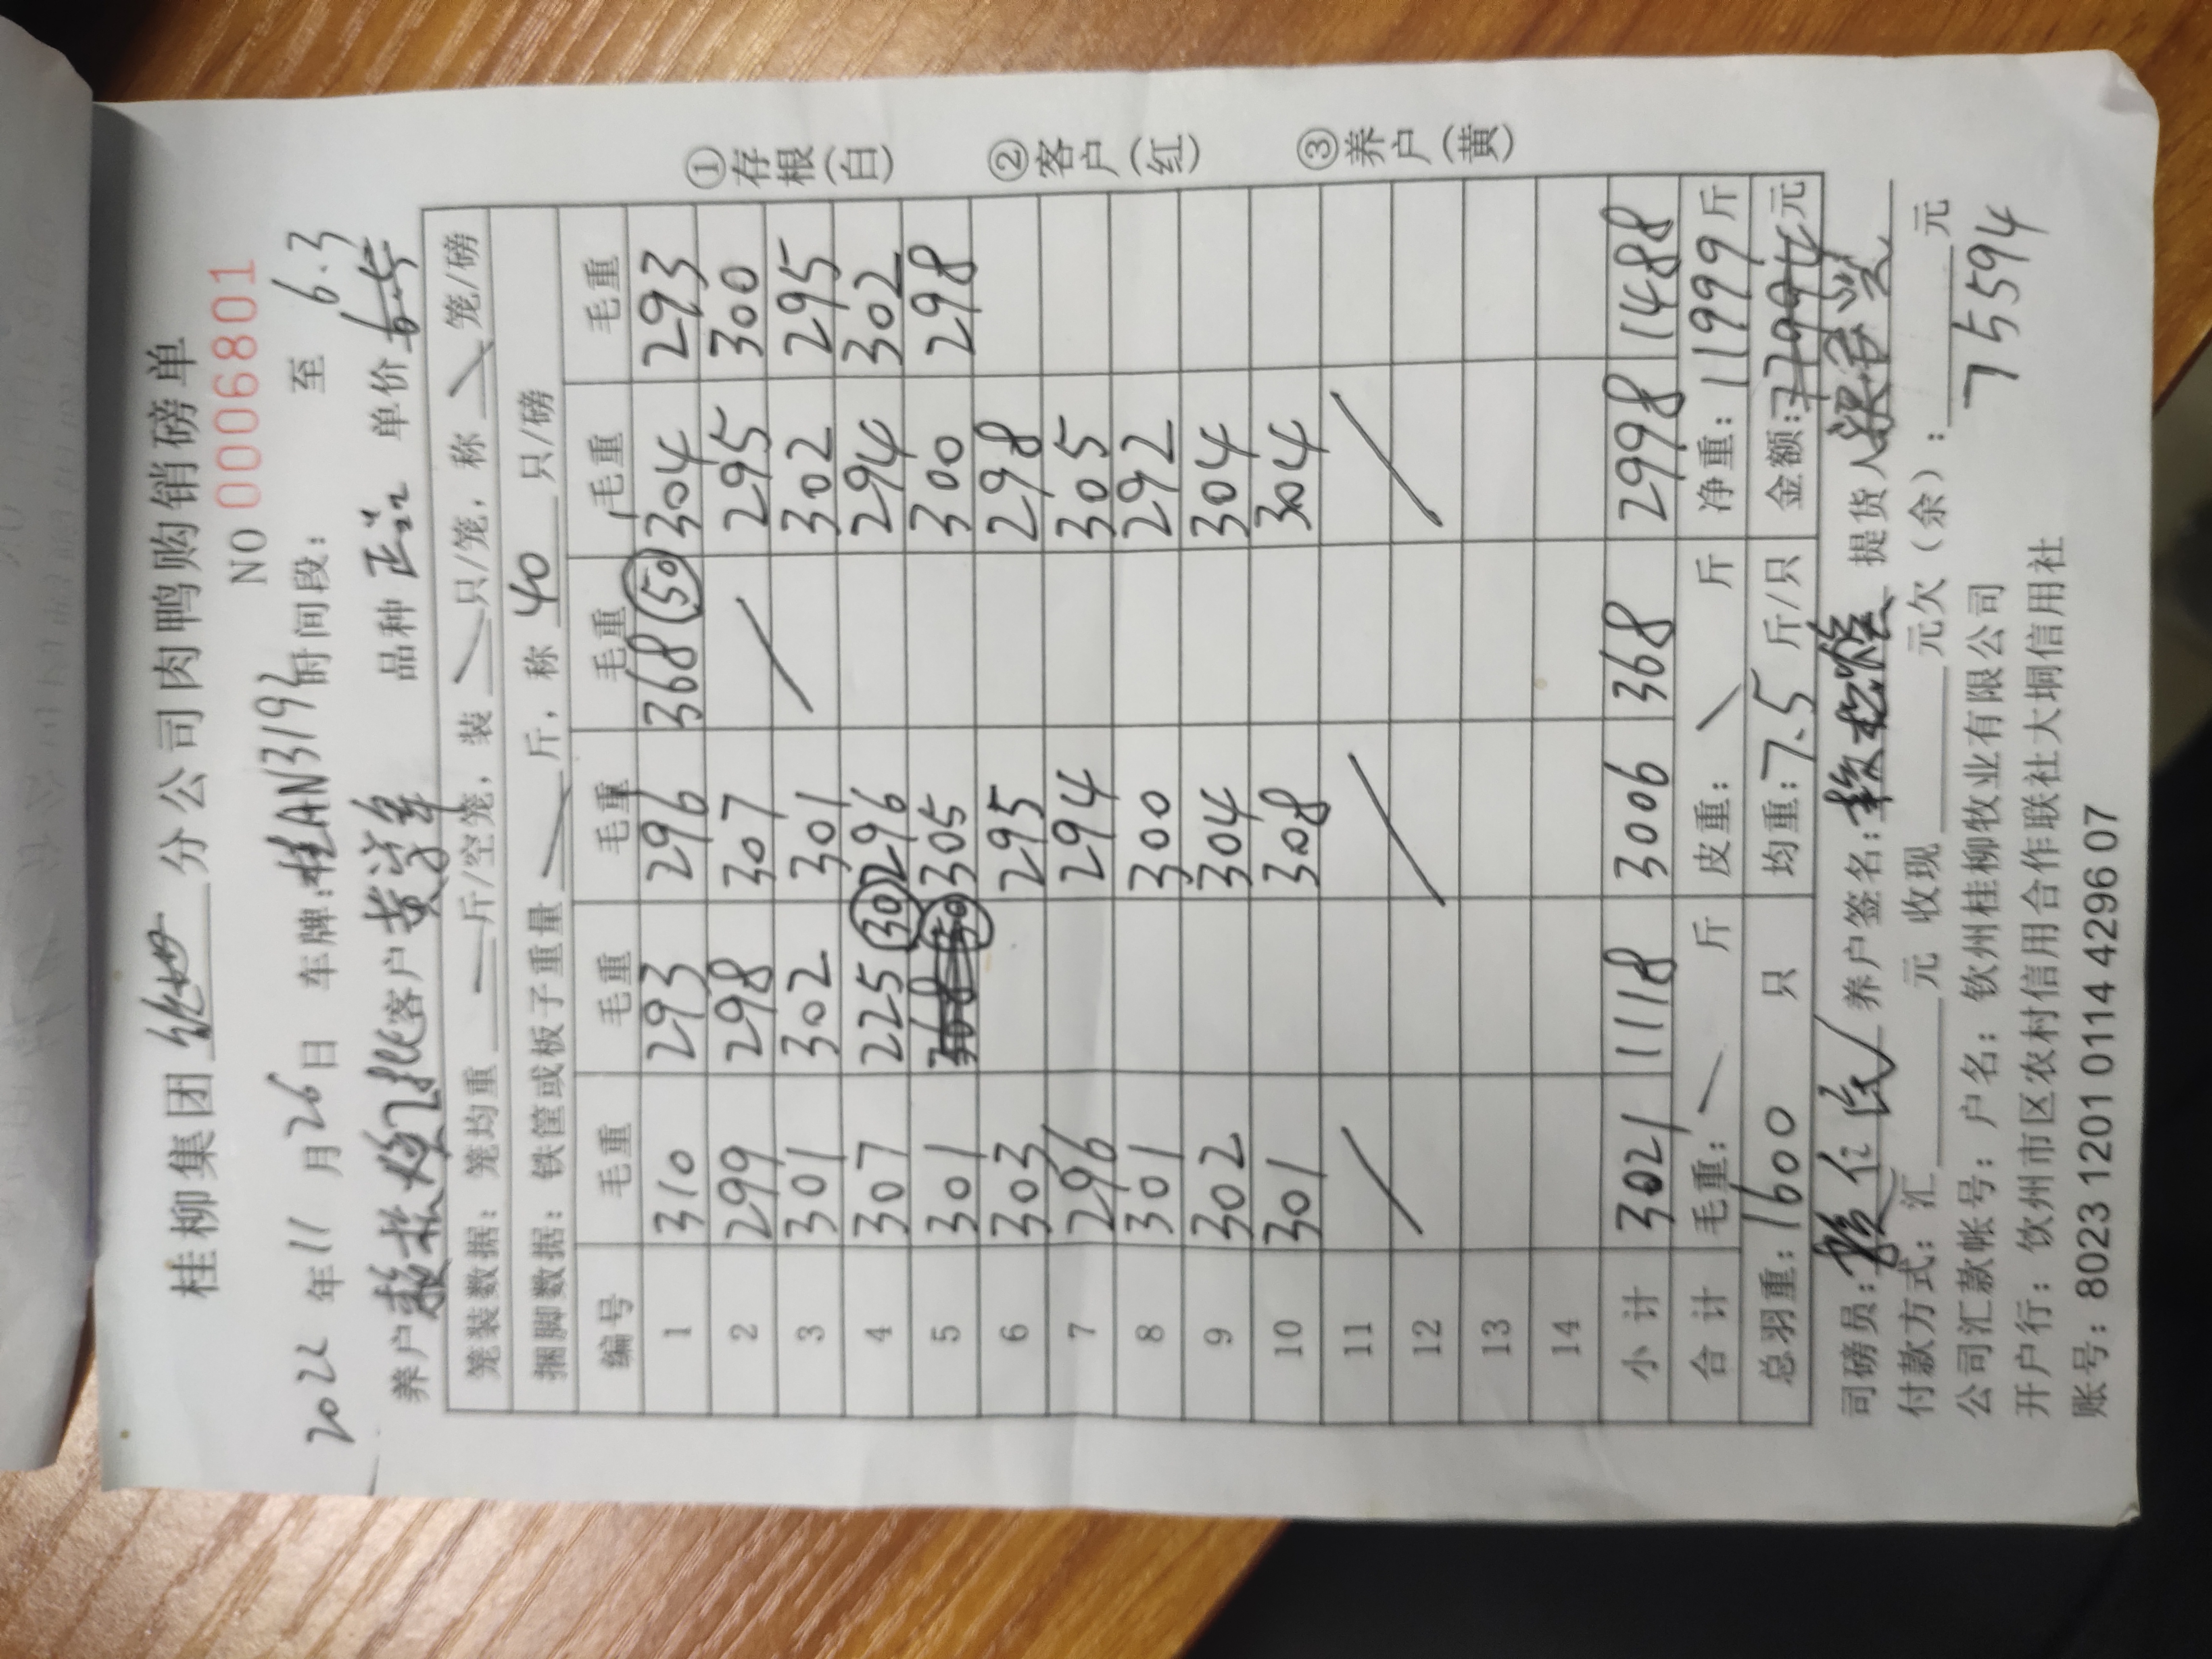 桂柳集团 分公司肉鸭购销磅单
NO 0006801
2022 年 11 月 26 日 车牌:桂AN3192 时间段: 至 6.3
养户 客户 黄 品种 正 单价
笼装数据: 笼均重 斤/空笼, 装 只/笼, 称 笼/磅
捆脚数据: 铁筐或板子重量 斤, 称 40 只/磅
编号 毛重 毛重 毛重 毛重 毛重 毛重
1 310 293 296 368 (50) 304 293
2 299 298 307 295 300
3 301 302 301 302 295
4 307 225 (30) 296 294 302
5 301 305 300 298
6 303 295 298
7 296 294 305
8 301 300 292
9 302 304 304
10 301 308 304
11
12
13
14
小计 3021 1118 3006 368 2998 1488
合计 毛重: 斤 皮重: 斤 净重: 11999 斤
总羽重: 1600 只 均重: 7.5 斤/只 金额: 元
司磅员: 养户签名: 提货人
付款方式: 汇 元 收现 元欠(余): 元
75594
公司汇款帐号: 户名: 钦州桂柳牧业有限公司
开户行: 钦州市区农村信用合作联社大垌信用社
账号: 8023 1201 0114 4296 07
①存根(白) ②客户(红) ③养户(黄)